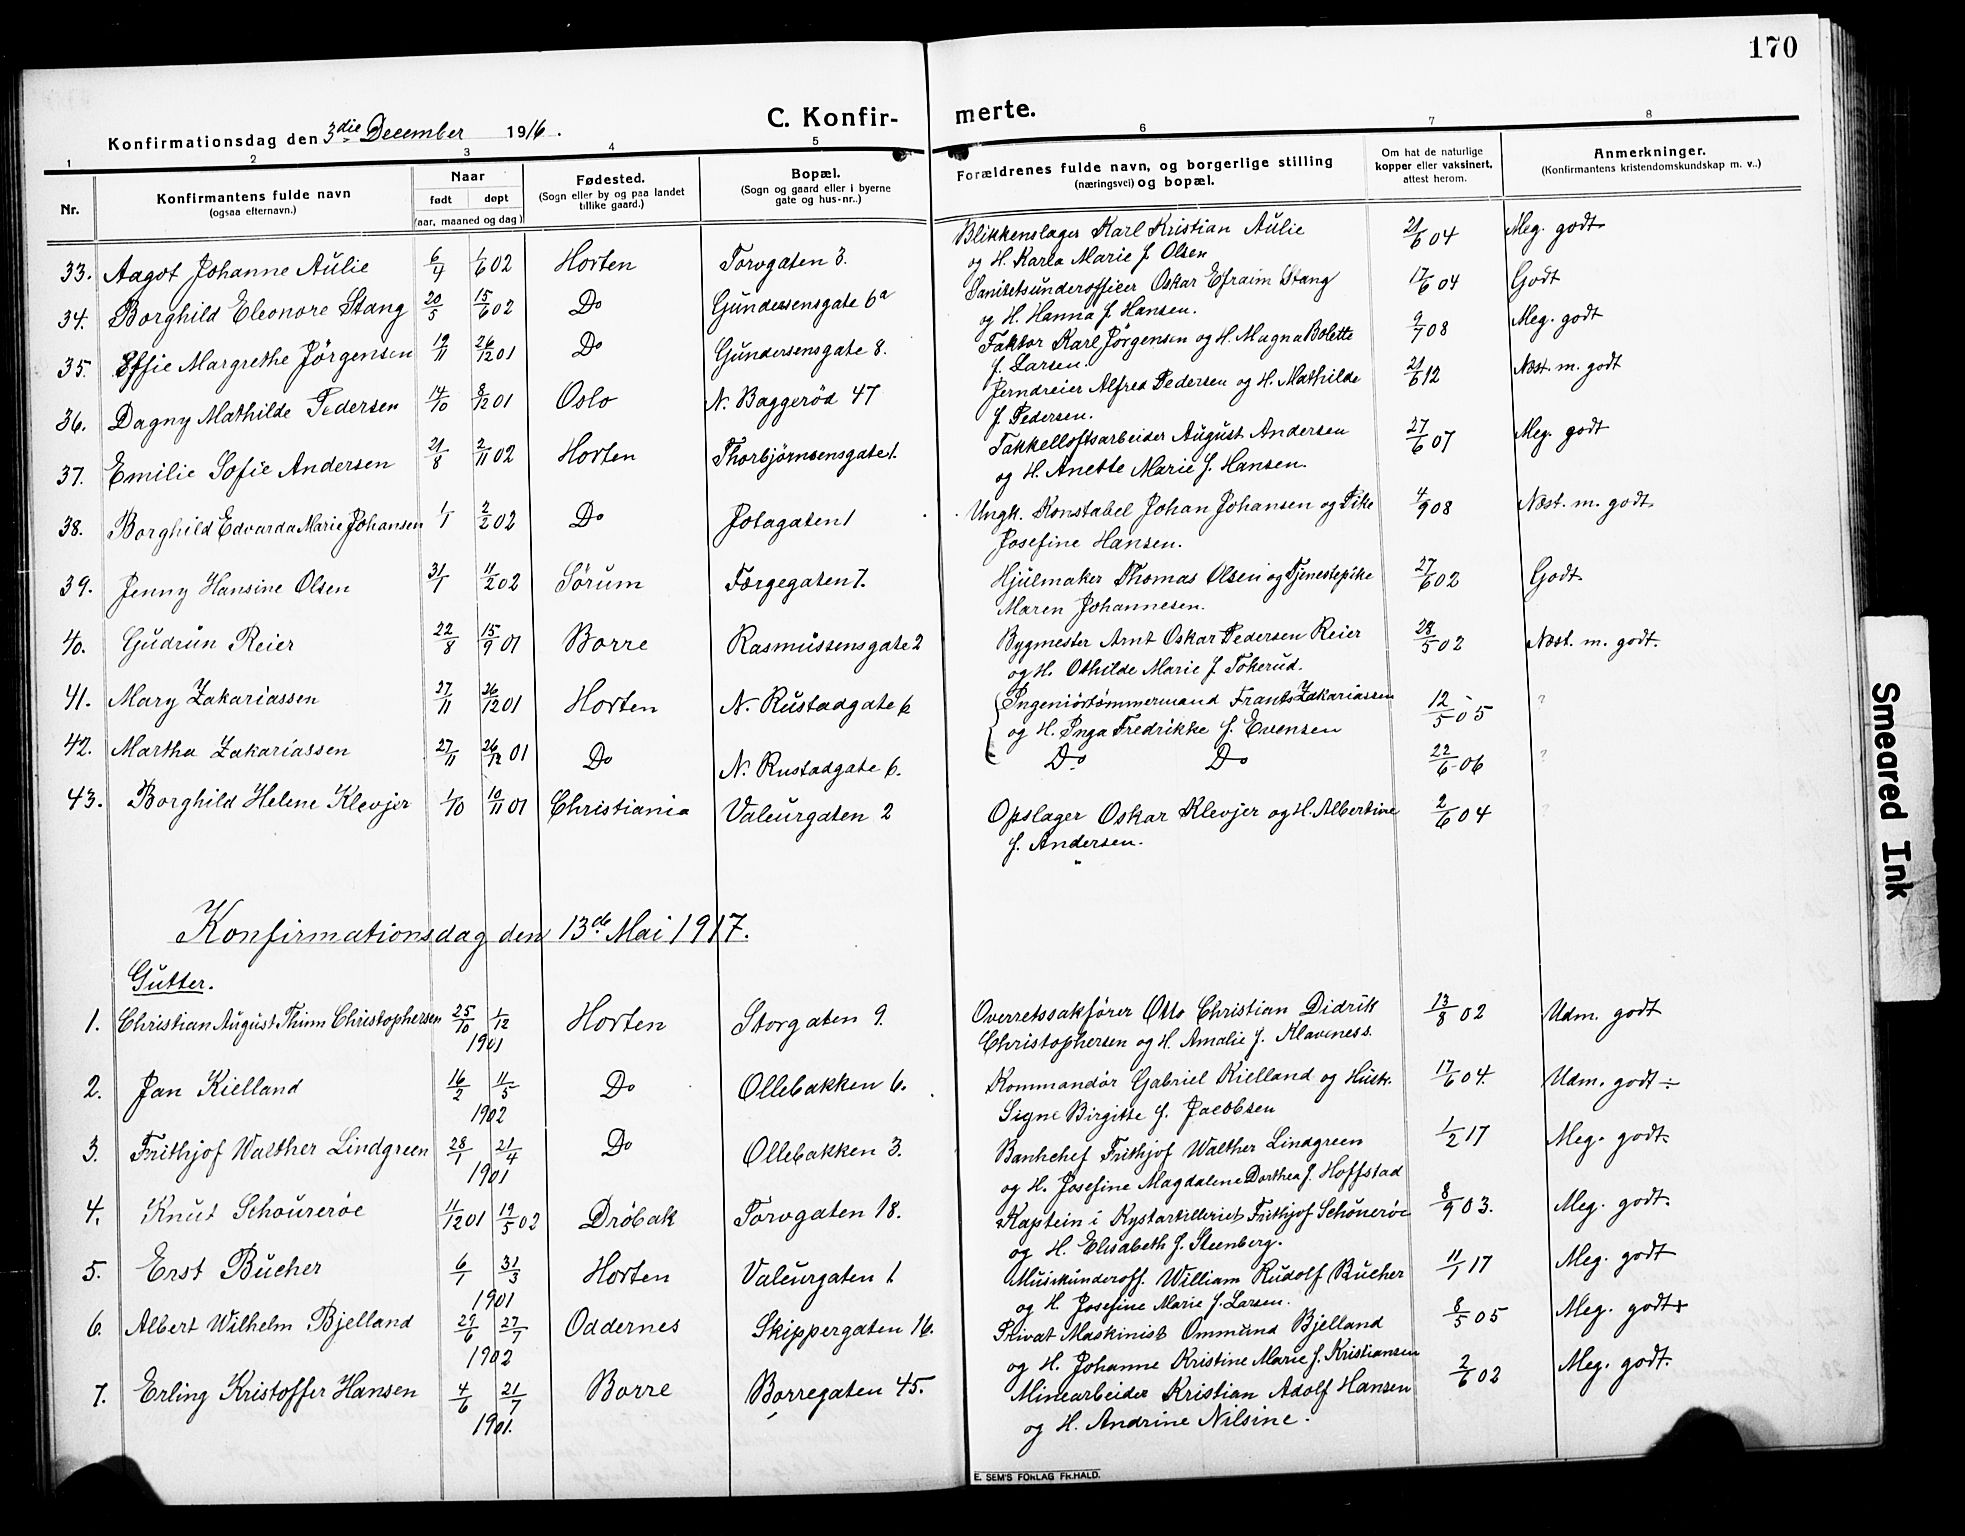 170
Konfirmationsdag den 3die December 1916.
C. Konfir-
merte.
1 2 3 4 5 6 7 8
Nr.
Konfirmantens fulde navn
(ogsaa efternavn.)
Naar
født døpt
(aar, maaned og dag)
Fødested.
(Sogn eller by og paa landet
tillike gaard.)
Bopæl.
(Sogn og gaard eller i byerne
gate og hus-nr..)
Forældrenes fulde navn, og borgerlige stilling
(næringsvei) og bopæl.
Om hat de naturlige
kopper eller vaksinert,
attest herom.
Anmerkninger.
(Konfirmantens kristendomskundskap m. v..)
33. Aagot Johanne Aulie 6/4 1/6 02 Horten Torvgaten 3. Blikkenslager Karl Kristian Aulie 21/6 04 Meg. godt
og H. Karla Marie f. Olsen
34. Borghild Eleonore Stang 20/5 15/6 02 Do Gundersensgate 6a Sanitetsunderofficer Oskar Efraim Stang 17/6 04 Godt
og H. Hanna f. Hansen.
35. Effie Margrethe Jörgensen 19/11 26/12 01 Do Gundersensgate 8. Faktor Karl Jörgensen og H. Magna Bolette 9/7 08 Meg. godt
f. Larsen.
36. Dagny Mathilde Pedersen 14/10 8/12 01 Oslo N. Baggerød 47 Jerndreier Alfred Pedersen og H. Mathilde 21/6 12 Næst. m. godt
f. Pedersen.
37. Emilie Sofie Andersen 21/8 2/11 02 Horten Thorbjørnsensgate 1. Takkelloftsarbeider August Andersen 27/6 07 Meg. godt
og H. Anette Marie f. Hansen.
38. Borghild Edvarda Marie Johansen 1/1 2/2 02 Do Jotagaten 1 Ungk. Konstabel Johan Johansen og Pike 4/9 08 Næst. m. godt.
Josefine Hansen.
39. Jenny Hansine Olsen 31/1 11/2 02 Sörum Færgegaten 7. Hjulmaker Thomas Olsen og Tjenestepike 27/6 02 Godt.
Maren Johannesen.
40. Gudrun Reier 22/8 15/9 01 Borre Rasmussensgate 2 Bygmester Arnt Oskar Pedersen Reier 28/5 02 Næst. m. godt.
og H. Othilde Marie f. Tokerud.
41. Mary Zakariassen 27/11 26/12 01 Horten N. Rustadgate 6 Ingeniörtömmermand Frants Zakariassen 12/5 05 ?
og H. Inga Fredrikke f. Evensen
42. Martha Zakariassen 27/11 26/12 01 Do N. Rustadgate 6. Do Do 22/6 06 ?
43. Borghild Helene Klevjer 1/10 10/11 01 Christiania Valeurgaten 2 Opslager Oskar Klevjer og H. Albertine 2/6 04 ?
f. Andersen.
Konfirmationsdag den 13de Mai 1917.
Gutter.
1. Christian August Thinn Christophersen 25/10 1/12 1901 Horten Storgaten 9. Overretssakfører Otto Christian Didrik 13/8 02 Udm. godt
Christophersen og H. Amalie f. Klaveness.
2. Jan Kielland 16/2 11/5 1902 Do Ollebakken 6. Kommandör Gabriel Kielland og Hustr. 17/6 04. Udm. godt ÷
Signe Birgitte f. Jacobsen
3. Frithjof Walther Lindgreen 28/1 21/4 1901 Do Ollebakken 3. Bankchef Frithjof Walther Lindgreen 1/2 17 Meg. godt.
og H. Josefine Magdalene Dorthea f. Hoffstad
4. Knut Schourerøe 11/12 01 19/5 02 Dröbak Torvgaten 18. Kaptein i Kystartilleriet Frithjof Schöuerøe 8/9 03. Meg. godt.
og H. Elisabeth f. Steenberg.
5. Erst Bucher 6/1 31/3 1901 Horten Valeurgaten 1 Musikunderoff. William Rudolf Bucher 11/1 17 Meg. godt
og H. Josefine Marie f. Larsen.
6. Albert Wilhelm Bjelland 29/6 27/7 1902 Oddernes Skippergaten 16. Privat Maskinist Ommund Bjelland 8/5 05 Meg. godt +
og H. Johanne Kristine Marie f. Kristiansen
7. Erling Kristoffer Hansen 4/6 21/7 1901. Borre Borregaten 45. Minearbeider Kristian Adolf Hansen 2/6 02 Meg. godt.
og H. Andrine Nilsine.
E. SEM'S FORLAG FR.HALD.
Smeared Ink